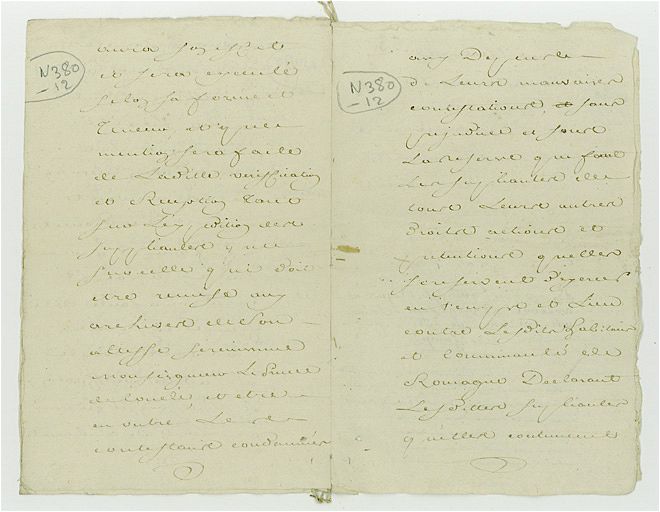 N380
-12
aura son effet
et sera executé
selon sa forme et
teneur, et que
mention sera faite
de Laditte verification
et Reception tant
sur L'expedition des
suppliantes que
sur celle qui doit
etre remise aux
archives de Son
altesse serenissime
Monseigneur Le Prince
de Condé, et etre
en outre Les
contestans condamnés
N380
-12
aux Depens de
de Leurs mauvaises
contestations, sans
prejudice et sous
La reserve que font
Les suppliantes de
tous Leurs autres
Droits actions et
pretentions qu'elles
se reservent d'exercer
en tems et Lieu
contre Lesdits habitans
et Communauté de
Romagne Declarant
Lesdittes suppliantes
qu'elles contiennent